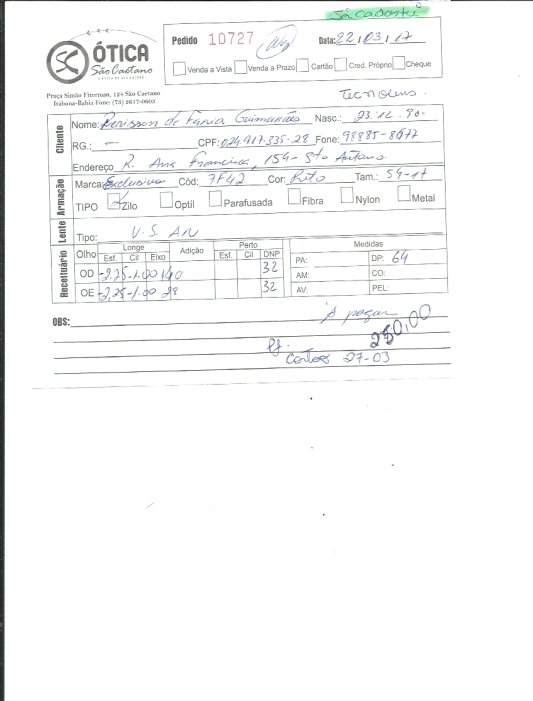 Já cadastro
ÓTICA
São Caetano
Pedido 10727
Data: 22/03/17
Venda a Vista Venda a Prazo Cartão Cred. Próprio Cheque
Praça Simão Fiterman, 124 São Caetano
Itabuna-Bahia Fone: (73) 3617-0603
Tecnolens.
Cliente
Nome: de Faria Guimarães Nasc.: 23.12.90-
RG.: — CPF: 024.917.535-28 Fone: 98885-8077
Endereço R. Ana Francisca, 154- Sto Antonio
Armação
Marca: Exclusiva Cód: 7F42 Cor: Preto Tam.: 54-17
TIPO Zilo Optil Parafusada Fibra Nylon Metal
Lente
Tipo: V.S. AN
Receituário
Olho Longe Adição Perto Medidas
Esf. Cil Eixo Esf. Cil DNP
OD -2,75 -1.00 140 32
OE -2,25 -1.00 28 32
PA: DP: 64
AM: CO:
AV: PEL:
OBS:
A pagar
250,00
27-03